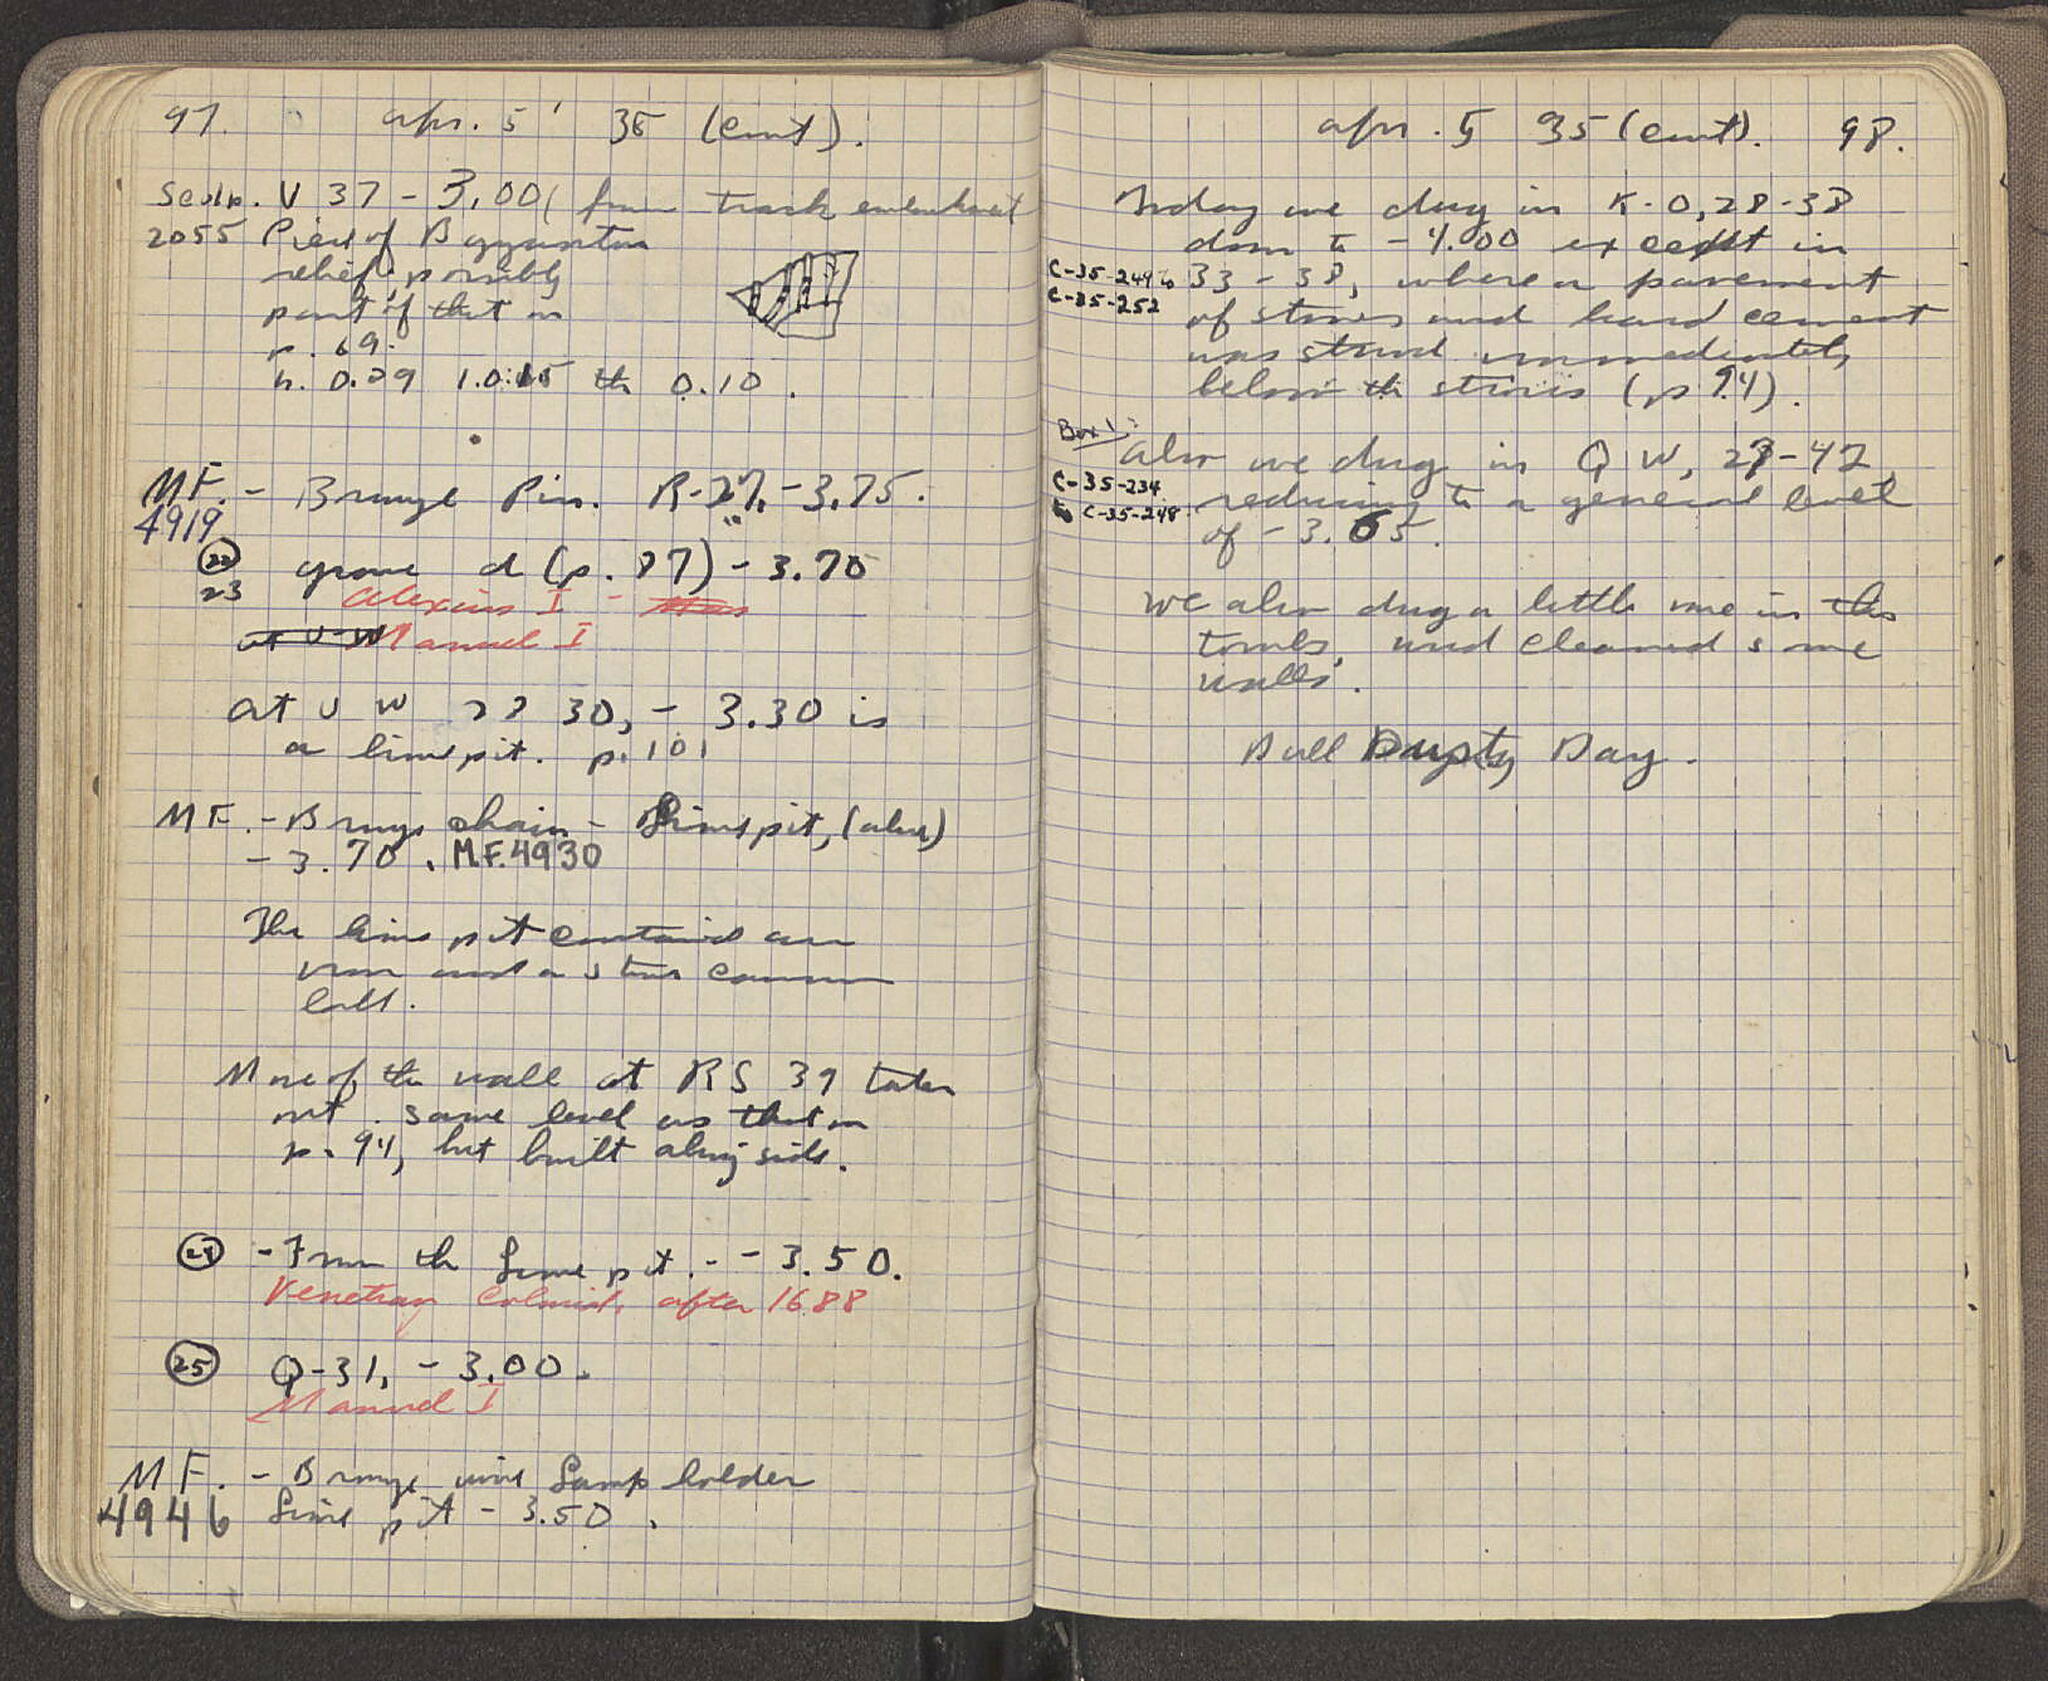 97. Apr. 5 ' 35 (cont).
Sculp. V 37 - 3.00 (from track embankment
2055 Piece of Byzantine
relief, possibly
part of that on
p. 69.
h. 0.29 l. 0.15 th 0.10.
MF. - Bronze Pin. R-27, -3.75.
4919
22 grave d (p. 87) - 3.70
23 Alexius I -
at U-W Manuel I
at U W 22 30, - 3.30 is
a lime pit. p. 101
MF. - Bronze chain - Lime pit, (above)
- 3.70. M.F. 4930
The lime pit contained an
iron and a stone cannon
ball.
More of the wall at RS 39 taken
out. same level as that on
p. 94, but built along side.
24 - From the Lime pit. - - 3.50.
Venetian Colonial, after 1688
25 Q-31, - 3.00.
Manuel I
MF. - Bronze wire Lamp holder
4946 Lime pit - 3.50.
Apr. 5 35 (cont). 98.
Today we dug in K-O, 28-38
down to - 4.00 except in
C-35-249 to 33 - 38, where a pavement
C-35-252 of stones and hard cement
was struck immediately
below the stones (p 94).
Box 1:
Also we dug in Q W, 27-42,
C-35-234 reducing to a general level
to C-35-248 of - 3.65.
We also dug a little more in the
tombs, and cleaned some
walls.
Dull Dusty Day.